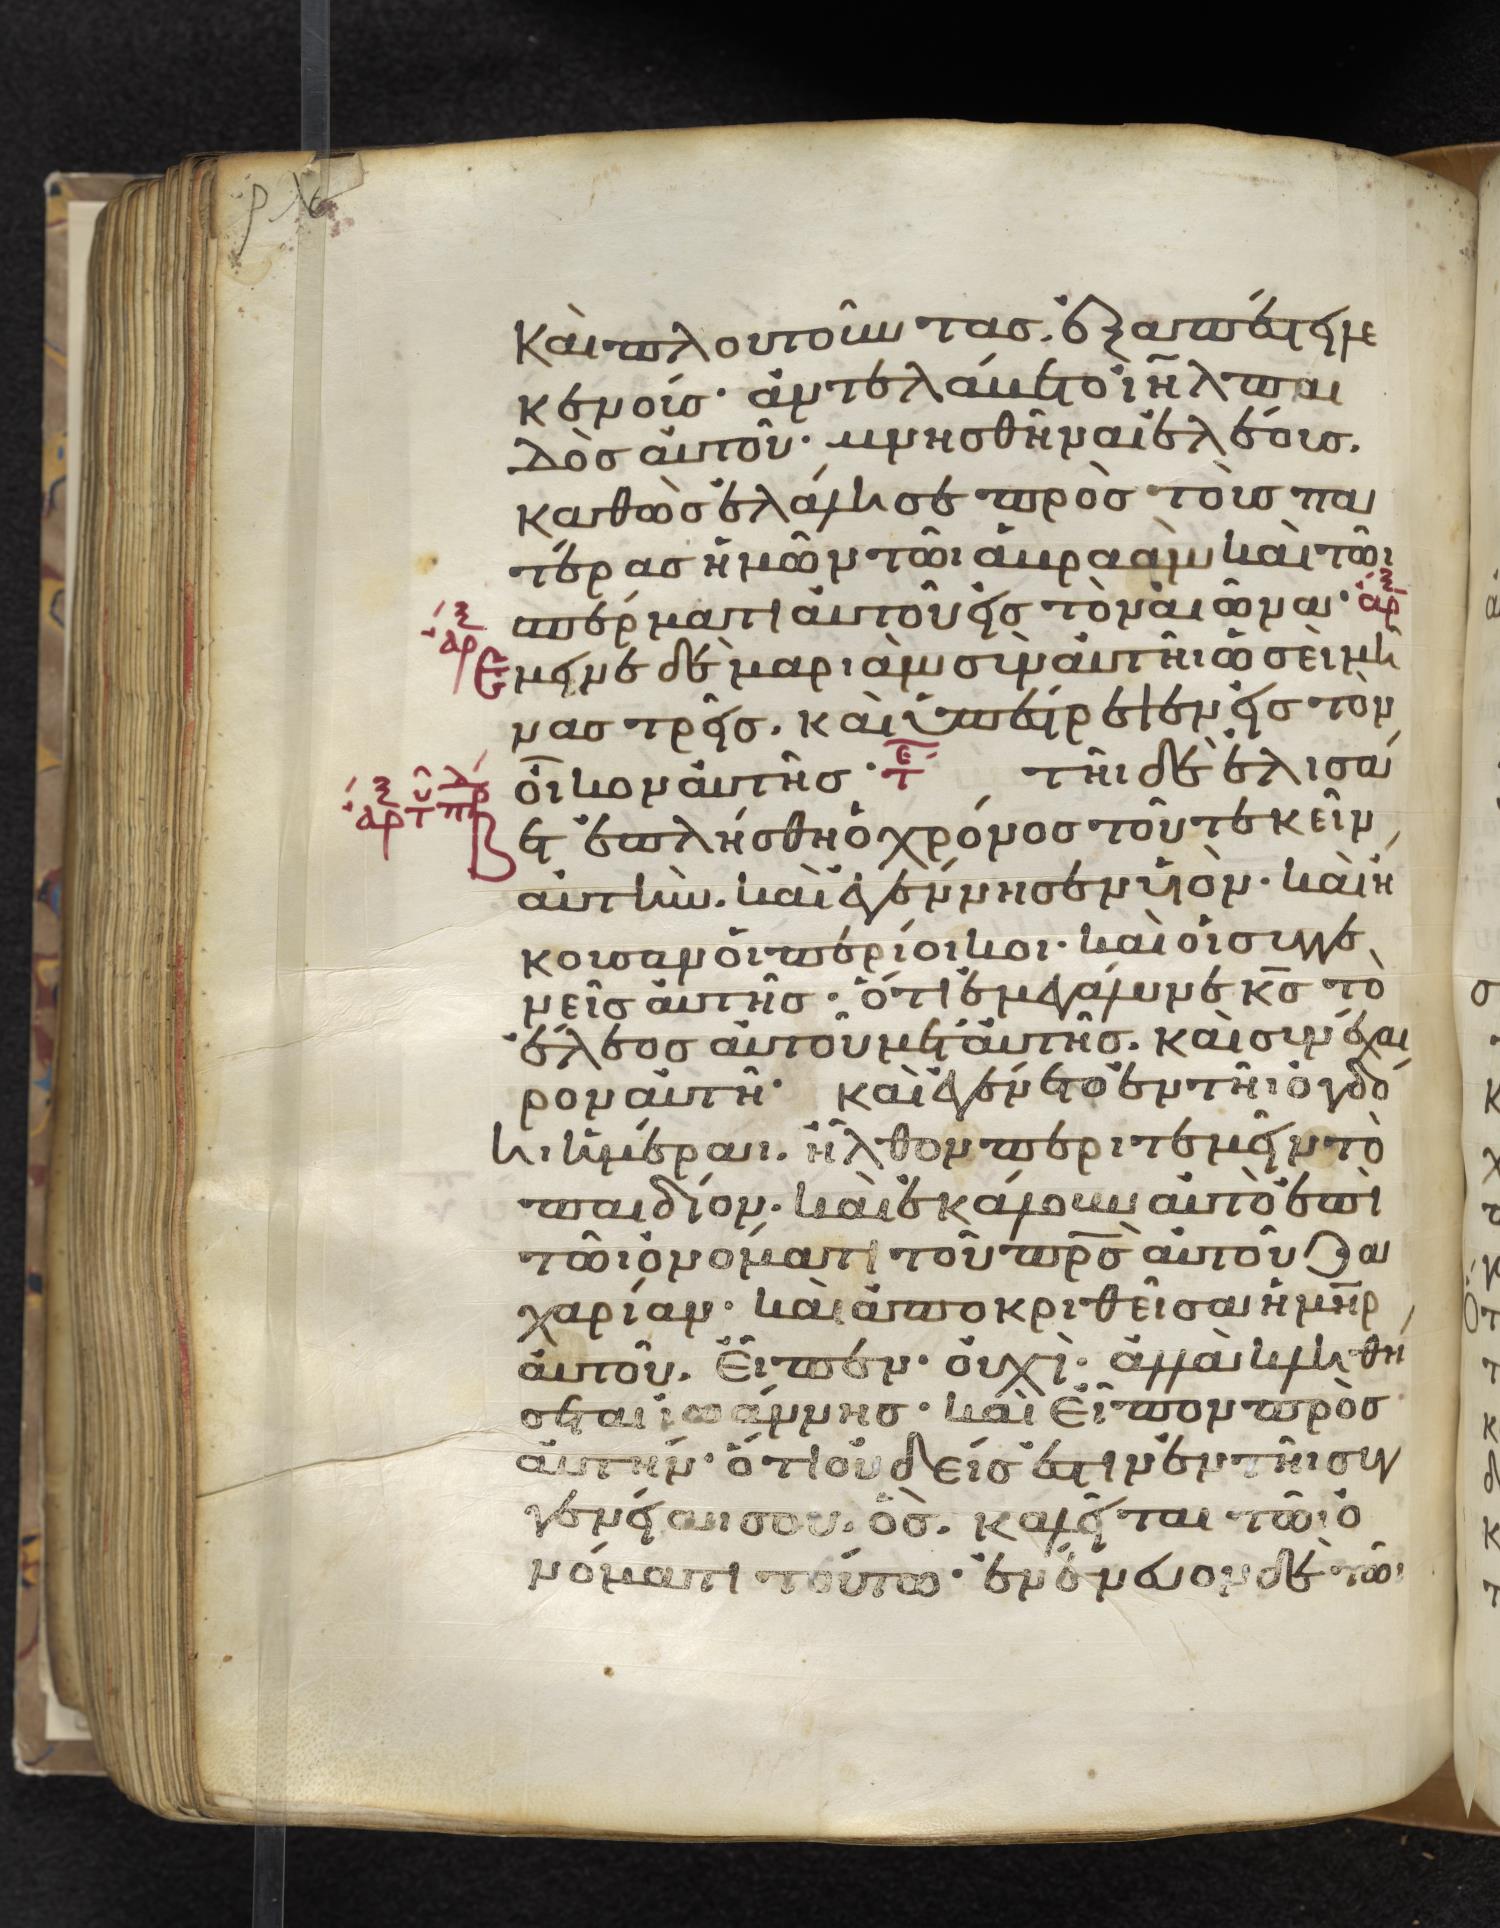 καὶ πλουτοῦντας. ἐξαπέστειλε
κενούς· ἀντελάβετο ἰ̅η̅λ παι
δὸς αὐτοῦ· μνησθῆναι ἐλέους.
καθὼς ἐλάλησε πρὸς τοὺς πα
τέρας ἡμῶν τῶι ἀβραὰμ καὶ τῶι
σπέρματι αὐτοῦ εἰς τὸν αἰῶνα·
Εμεινε δὲ μαριὰμ σὺν αὐτῆι ὡσεὶ μῆ
νας τρεῖς. καὶ ὑπέστρεψεν εἰς τὸν
οἶκον αὐτῆς· τῆι δὲ ἐλισά
βετ ἐπλήσθη ὁ χρόνος τοῦ τεκεῖν
αὐτὴν. καὶ ἐγέννησεν υἱὸν· καὶ ἤ
κουσαν οἱ περίοικοι· καὶ οἱ συγγε
νεῖς αὐτῆς· ὅτι ἐμεγάλυνε κ̅ς̅ τὸ
ἔλεος αὐτοῦ μετ' αὐτῆς. καὶ συνέχαι
ρον αὐτῆ· καὶ ἐγένετο ἐν τῆι ὀγδό
ηι ἡμέραι. ἦλθον περιτεμεῖν τὸ
παιδίον. καὶ ἐκάλουν αὐτὸ ἐπὶ
τῶι ὀνόματι τοῦ π̅ρ̅ς̅ αὐτοῦ ζα
χαρίαν· καὶ ἀποκριθεῖσα ἡ μ̅η̅ρ
αὐτοῦ. εἶπεν· οὐχὶ· ἀλλὰ κληθή
σεται ἰωάννης· καὶ εἶπον πρὸς
αὐτήν· ὅτι οὐδείς ἐστιν ἐν τῆι συγ
γενείαι σου. ὃς. καλεῖται τῶι ὀ
νόματι τούτω· ἐνένευον δὲ τῶι